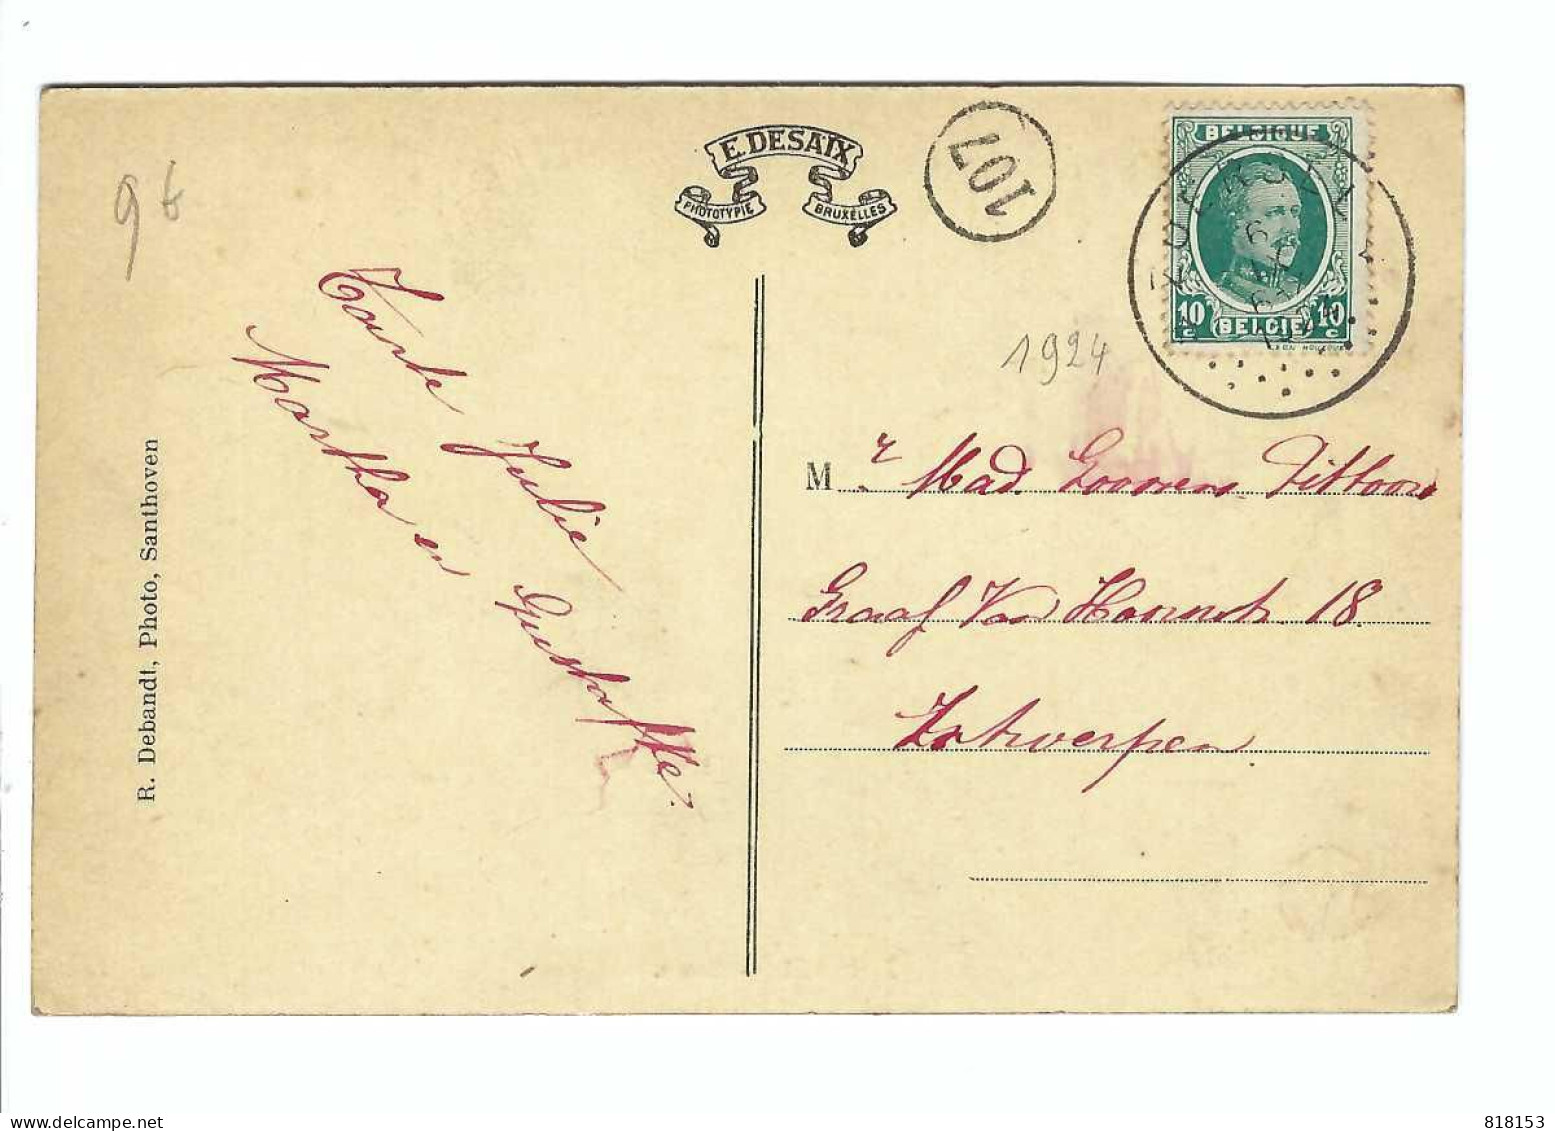 E. DESAIX
PHOTOTYPIE
BRUXELLES
107
BELGIQUE
10 c
10 c
BELGIË
1924
9 6
Tante Julie
Martha en Gustafke.
R. Debandt, Photo, Santhoven
M r Mad. Goossens
Graaf Van Hoornestr. 18.
Antwerpen
www.delcampe.net
818153